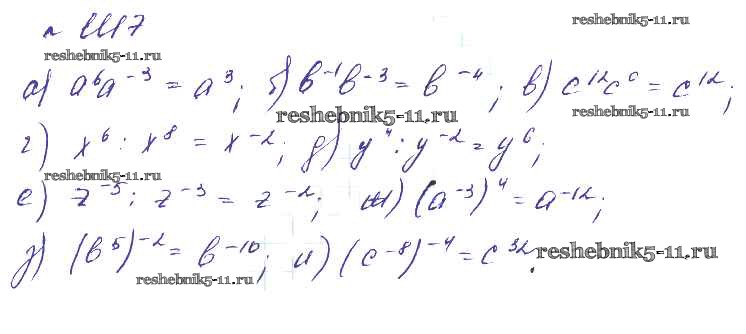 № 1117
reshebnik5-11.ru
reshebnik5-11.ru
а) a⁶a⁻³ = a³; б) b⁻¹b⁻³ = b⁻⁴; в) c¹²c⁰ = c¹²;
reshebnik5-11.ru
г) x⁶ : x⁸ = x⁻²; д) y⁴ : y⁻² = y⁶;
reshebnik5-11.ru
е) z⁻⁵ : z⁻³ = z⁻²; ж) (a⁻³)⁴ = a⁻¹²;
з) (b⁵)⁻² = b⁻¹⁰; и) (c⁻⁸)⁻⁴ = c³².
reshebnik5-11.ru
reshebnik5-11.ru